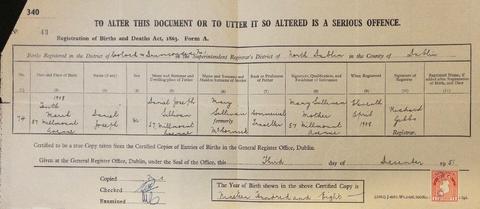 340
TO ALTER THIS DOCUMENT OR TO UTTER IT SO ALTERED IS A SERIOUS OFFENCE.
43
Registration of Births and Deaths Act, 1863. Form A.
Births Registered in the District of in the Superintendent Registrar's District of North Dublin in the County of Dublin
No. Date and Place of Birth Name (if any) Sex Name and Surname and Dwelling-place of Father Name and Surname and Maiden Surname of Mother Rank or Profession of Father Signature, Qualification, and Residence of Informant When Registered Signature of Registrar Registered Name, if added after Registration of Birth, and Date
(1) (2) (3) (4) (5) (6) (7) (8) (9) (10) (11)
74
1908
Tenth
March
57 Millmount
Avenue
Daniel
Joseph
M
Daniel Joseph
Sullivan
57 Millmount
Avenue
Mary
Sullivan
formerly
McCormick
Commercial
Traveller
Mary Sullivan
Mother
57 Millmount
Avenue
Eleventh
April
1908
Richard
Gibbs
Registrar.
Certified to be a true Copy taken from the Certified Copies of Entries of Births in the General Register Office, Dublin.
Given at the General Register Office, Dublin, under the Seal of this Office, this Third day of December 195
Copied
Checked
Examined
The Year of Birth shown in the above Certified Copy is
Nineteen Hundred and Eight